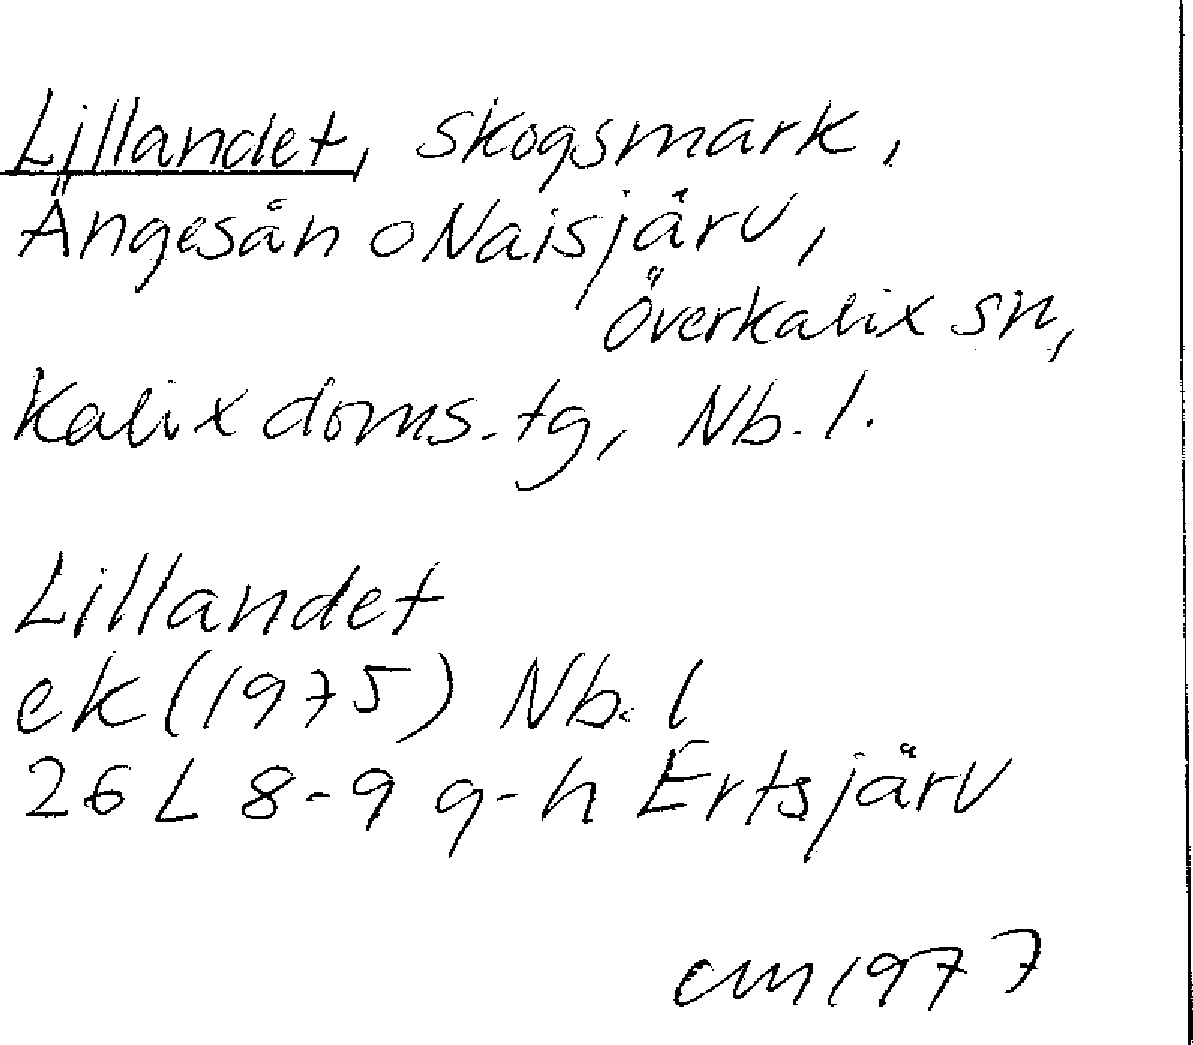 Lillandet, skogsmark,
Ängesån o Naisjärv,
Överkalix sn,
Kalix doms.tg, Nb.l.
Lillandet
ek (1975) Nb.l
26 L 8-9 g-h Ertsjärv
cm 1977